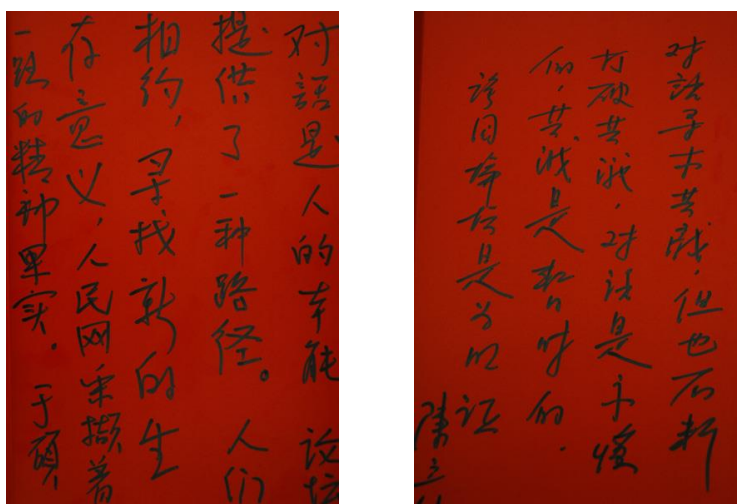 对話是人的本能 论坛
提供了一种路径。人们
相约，寻找新的生
存意义，人民网采撷着
一路的精神果实。于硕
对話寻求共識，但也不断
打破共識，对話是永恆
的，共識是暂时的。
强国論坛是为明证
陳立